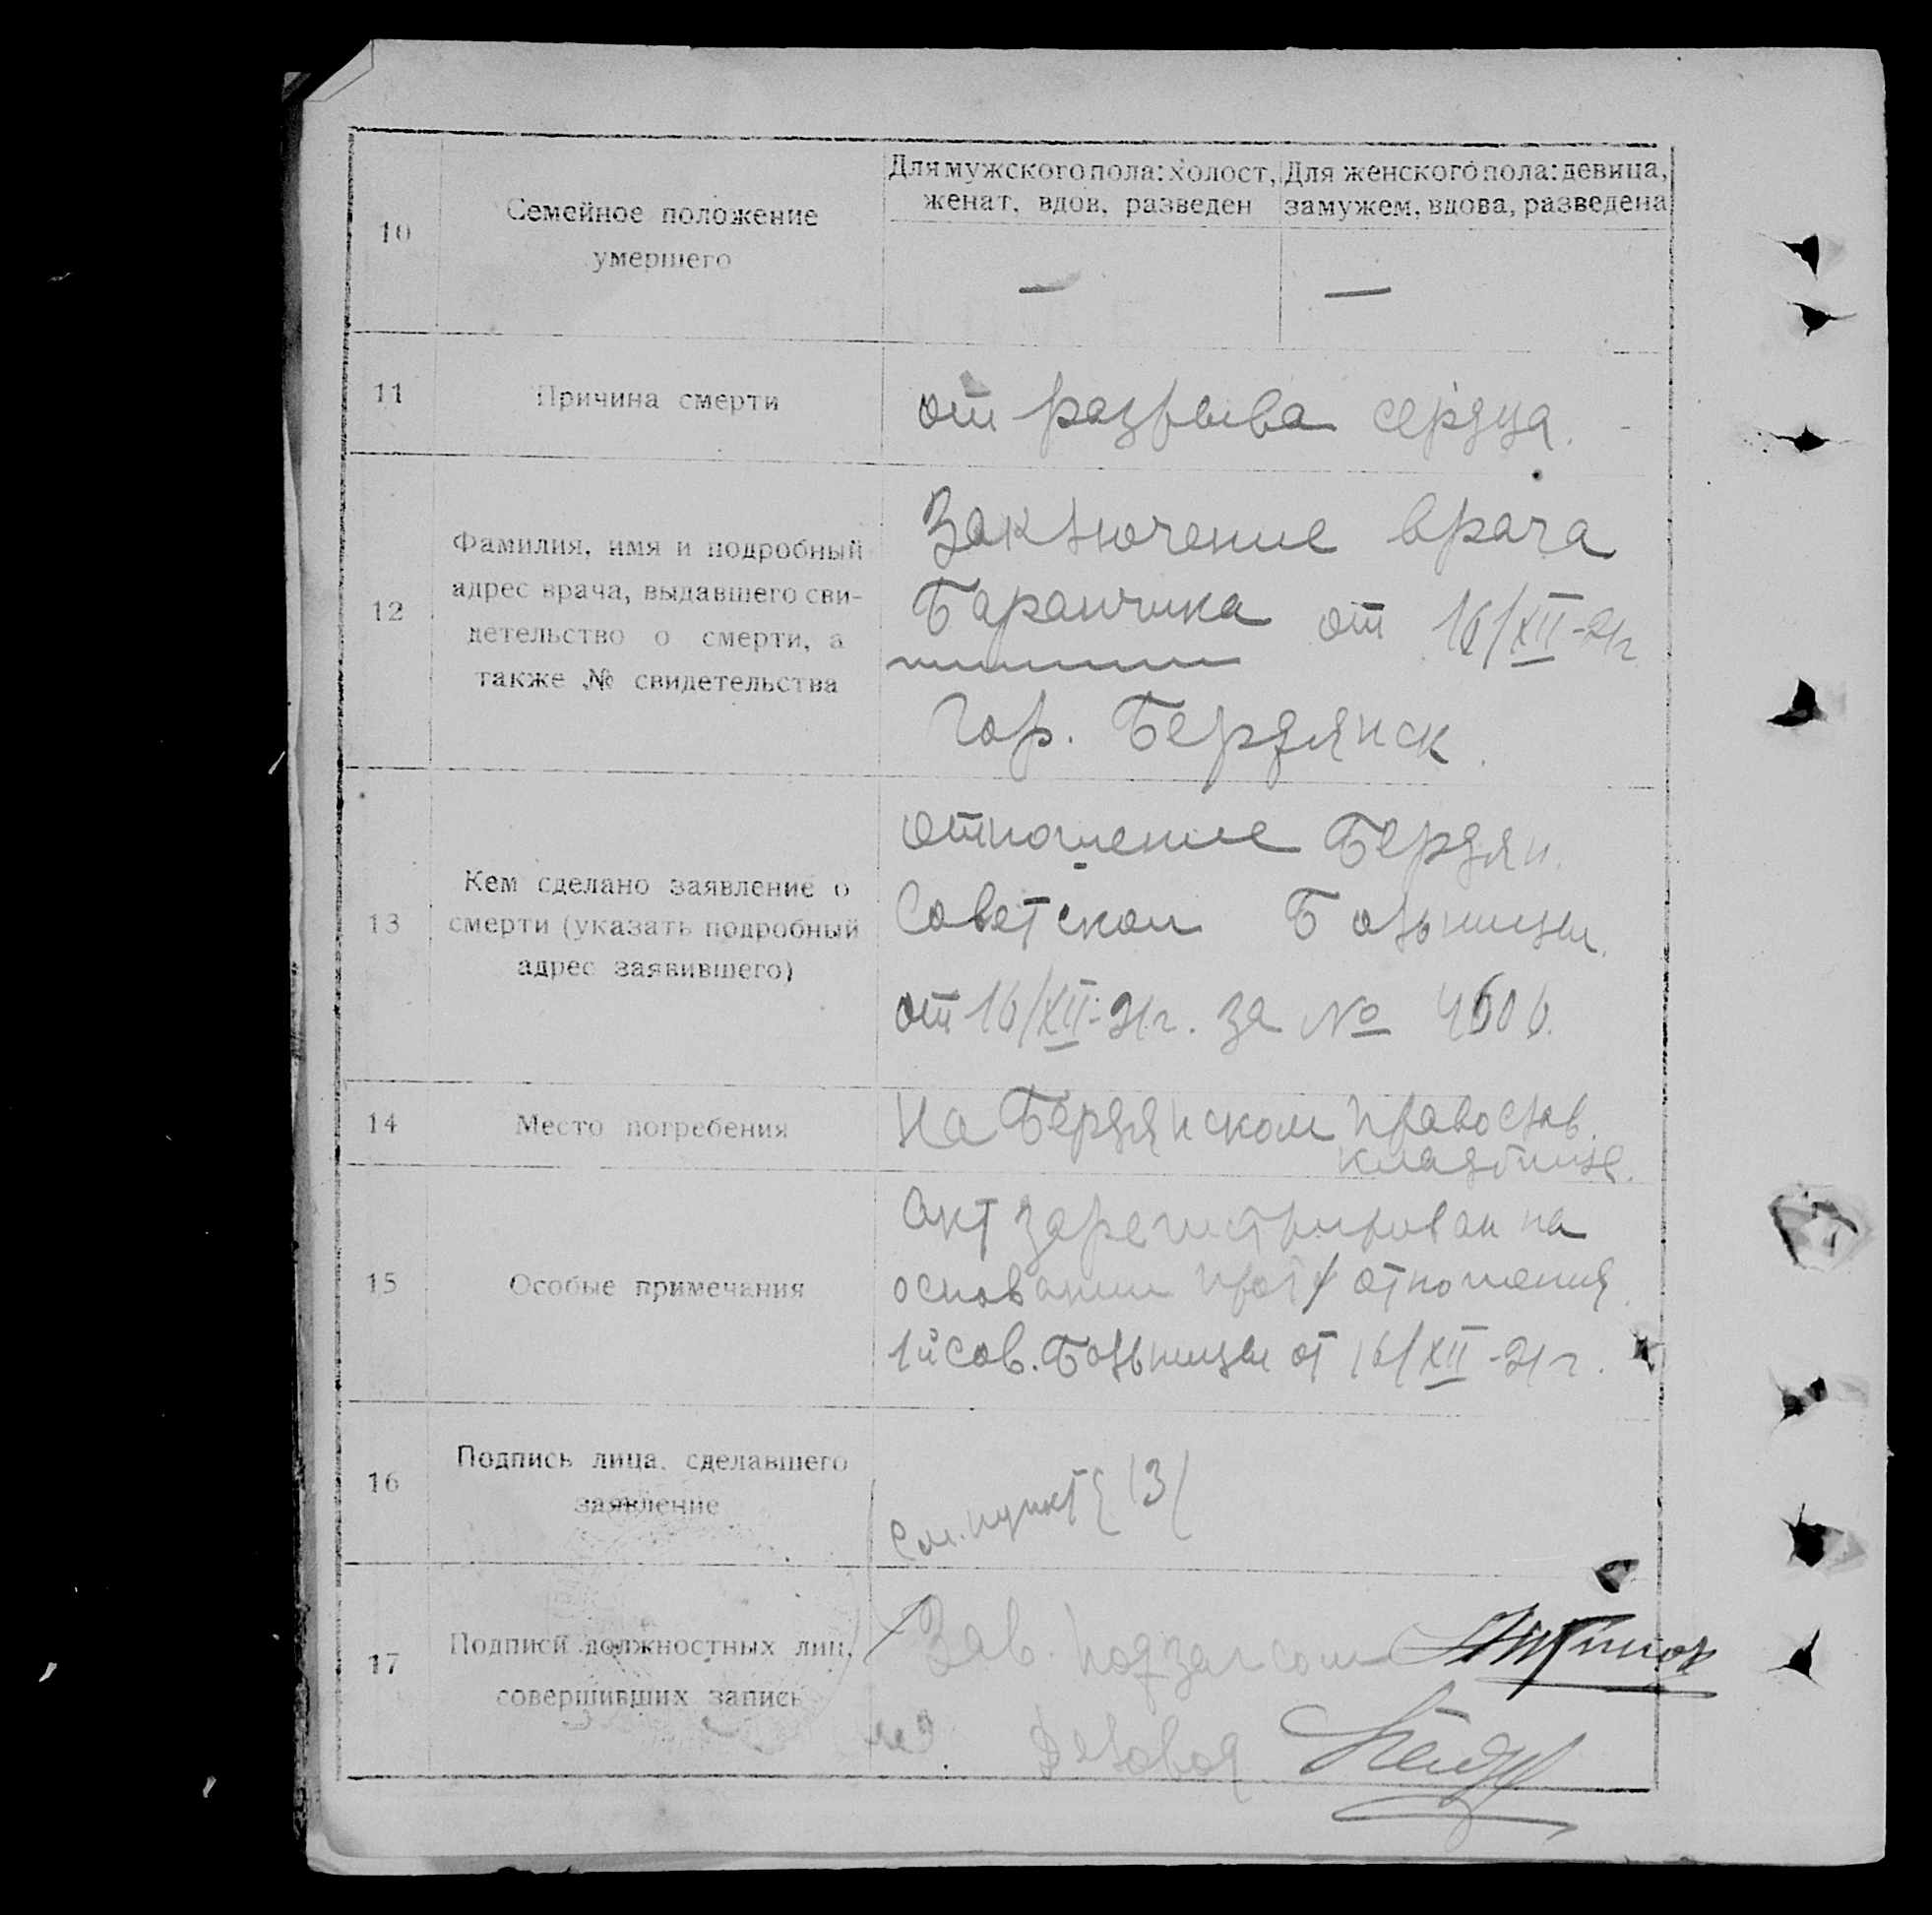 10
Семейное положение
умершего
Для мужского пола: холост,
женат, вдов, разведен
Для женского пола: девица,
замужем, вдова, разведена
—
—
11
Причина смерти
от разрыва сердца.
12
Фамилия, имя и подробный
адрес врача, выдавшего сви-
детельство о смерти, а
также № свидетельства
Заключение врача
Баранчика от 16/XII-21г
Гор. Бердянск.
13
Кем сделано заявление о
смерти (указать подробный
адрес заявившего)
Отношение Бердян.
Советской Больницы.
от 16/XII-21г. за № 4606.
14
Место погребения
На Бердянском Православ.
кладбище.
15
Особые примечания
Акт зарегистрирован на
основании отношения
1й Сов. Больницы от 16/XII-21г.
16
Подпись лица, сделавшего
заявление
См. пункт 13/
17
Подписи должностных лиц,
совершивших запись
Зав. подзагсом
Деловод